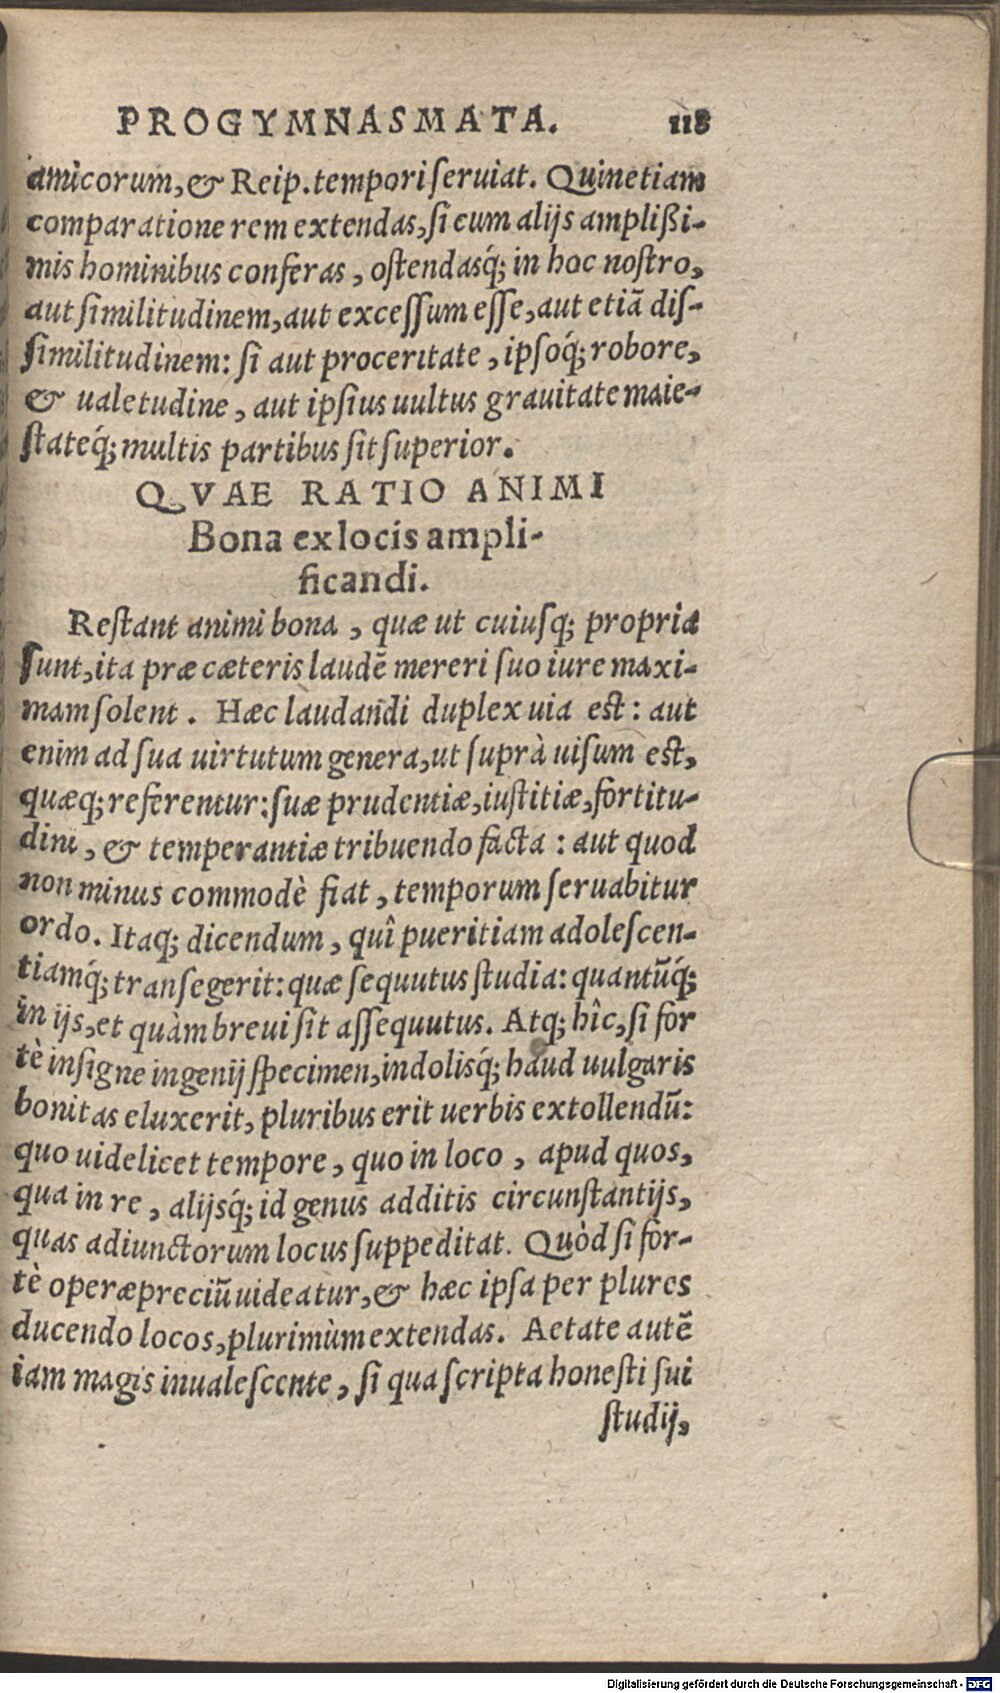 PROGYMNASMATA. 118
amicorum, & Reip. tempori ſeruiat. Quinetiam
comparatione rem extendas, ſi cum alijs ampliſsi-
mis hominibus conferas, oſtendasq́; in hoc noſtro,
aut ſimilitudinem, aut exceſſum eſſe, aut etiã diſ-
ſimilitudinem: ſi aut proceritate, ipſoq́; robore,
& ualetudine, aut ipſius uultus grauitate maie-
ſtateq́; multis partibus ſit ſuperior.
QVAE RATIO ANIMI
Bona ex locis ampli-
ficandi.
Reſtant animi bona, quæ ut cuiuſq; propria
ſunt, ita præ cæteris laudẽ mereri ſuo iure maxi-
mam ſolent. Hæc laudandi duplex uia est: aut
enim ad ſua uirtutum genera, ut ſuprà uiſum est,
quæq; referentur: ſuæ prudentiæ, iuſtitiæ, fortitu-
dini, & temperantiæ tribuendo facta: aut quod
non minus commodè fiat, temporum ſeruabitur
ordo. Itaq; dicendum, quî pueritiam adoleſcen-
tiamq́; tranſegerit: quæ ſequutus ſtudia: quantũq́;
in ijs, et quàm breui ſit aſſequutus. Atq; hîc, ſi for
tè inſigne ingenij ſpecimen, indolisq́; haud uulgaris
bonitas eluxerit, pluribus erit uerbis extollendũ:
quo uidelicet tempore, quo in loco, apud quos,
qua in re, alijsq́; id genus additis circunſtantijs,
quas adiunctorum locus ſuppeditat. Quòd ſi for-
tè operæpreciũ uideatur, & hæc ipſa per plures
ducendo locos, plurimùm extendas. Aetate autẽ
iam magis inualeſcente, ſi qua ſcripta honeſti ſui
ſtudij,
Digitalisierung gefördert durch die Deutsche Forschungsgemeinschaft - DFG